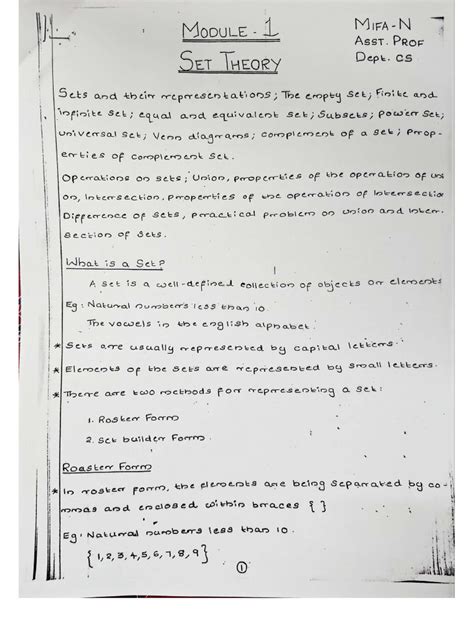 MODULE - 1
SET THEORY
MIFA - N
ASST. PROF
Dept. CS
Sets and their representations; The empty set; Finite and
infinite set; equal and equivalent set; Subsets; power set;
universal set; Venn diagrams; complement of a set; prop-
erties of complement set.
Operations on sets; Union, properties of the operation of uni
on, Intersection, properties of the operation of Intersection
Difference of sets, practical problem on union and inter-
section of sets.
What is a Set?
A set is a well-defined collection of objects or elements
Eg: Natural numbers less than 10.
The vowels in the english alphabet.
* Sets are usually represented by capital letters.
* Elements of the sets are represented by small letters.
* There are two methods for representing a set:
1. Roster Form
2. Set builder Form.
Roaster Form
* In roster form, the elements are being separated by co-
mmas and enclosed within braces { }
Eg: Natural numbers less than 10.
{1,2,3,4,5,6,7,8,9}
1